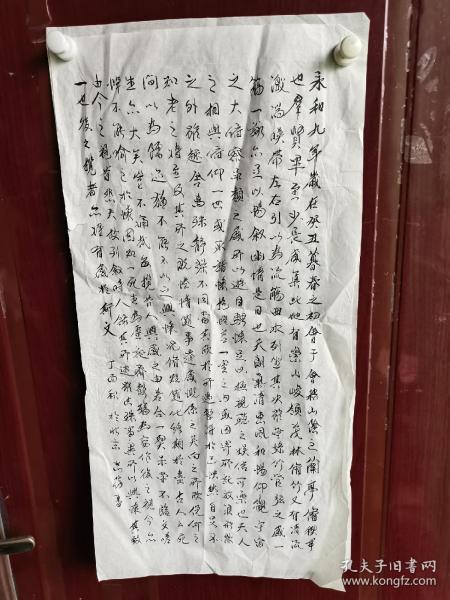 永和九年歲在癸丑暮春之初會于會稽山陰之蘭亭脩稧事
也羣賢畢至少長咸集此地有崇山峻領茂林脩竹又有清流
激湍暎帶左右引以為流觴曲水列坐其次雖無絲竹管弦之盛一
觴一詠亦足以暢敘幽情是日也天朗氣清惠風和暢仰觀宇宙
之大俯察品類之盛所以遊目騁懷足以極視聽之娛信可樂也夫人
之相與俯仰一世或取諸懷抱悟言一室之內或因寄所託放浪形骸
之外雖趣舍萬殊靜躁不同當其欣於所遇蹔得於己怏然自足不
知老之將至及其所之既惓情隨事遷感慨係之矣向之所欣俛仰之
間以為陳迹猶不能不以之興懷況脩短隨化終期於盡古人云死
生亦大矣豈不痛哉每攬昔人興感之由若合一契未嘗不臨文嗟
悼不能喻之於懷固知一死生為虛誕齊彭殤為妄作後之視今亦
由今之視昔悲夫故列敘時人錄其所述雖世殊事異所以興懷其致
一也後之覽者亦將有感於斯文 丁酉秋於北京
孔夫子旧书网
www.kongfz.com